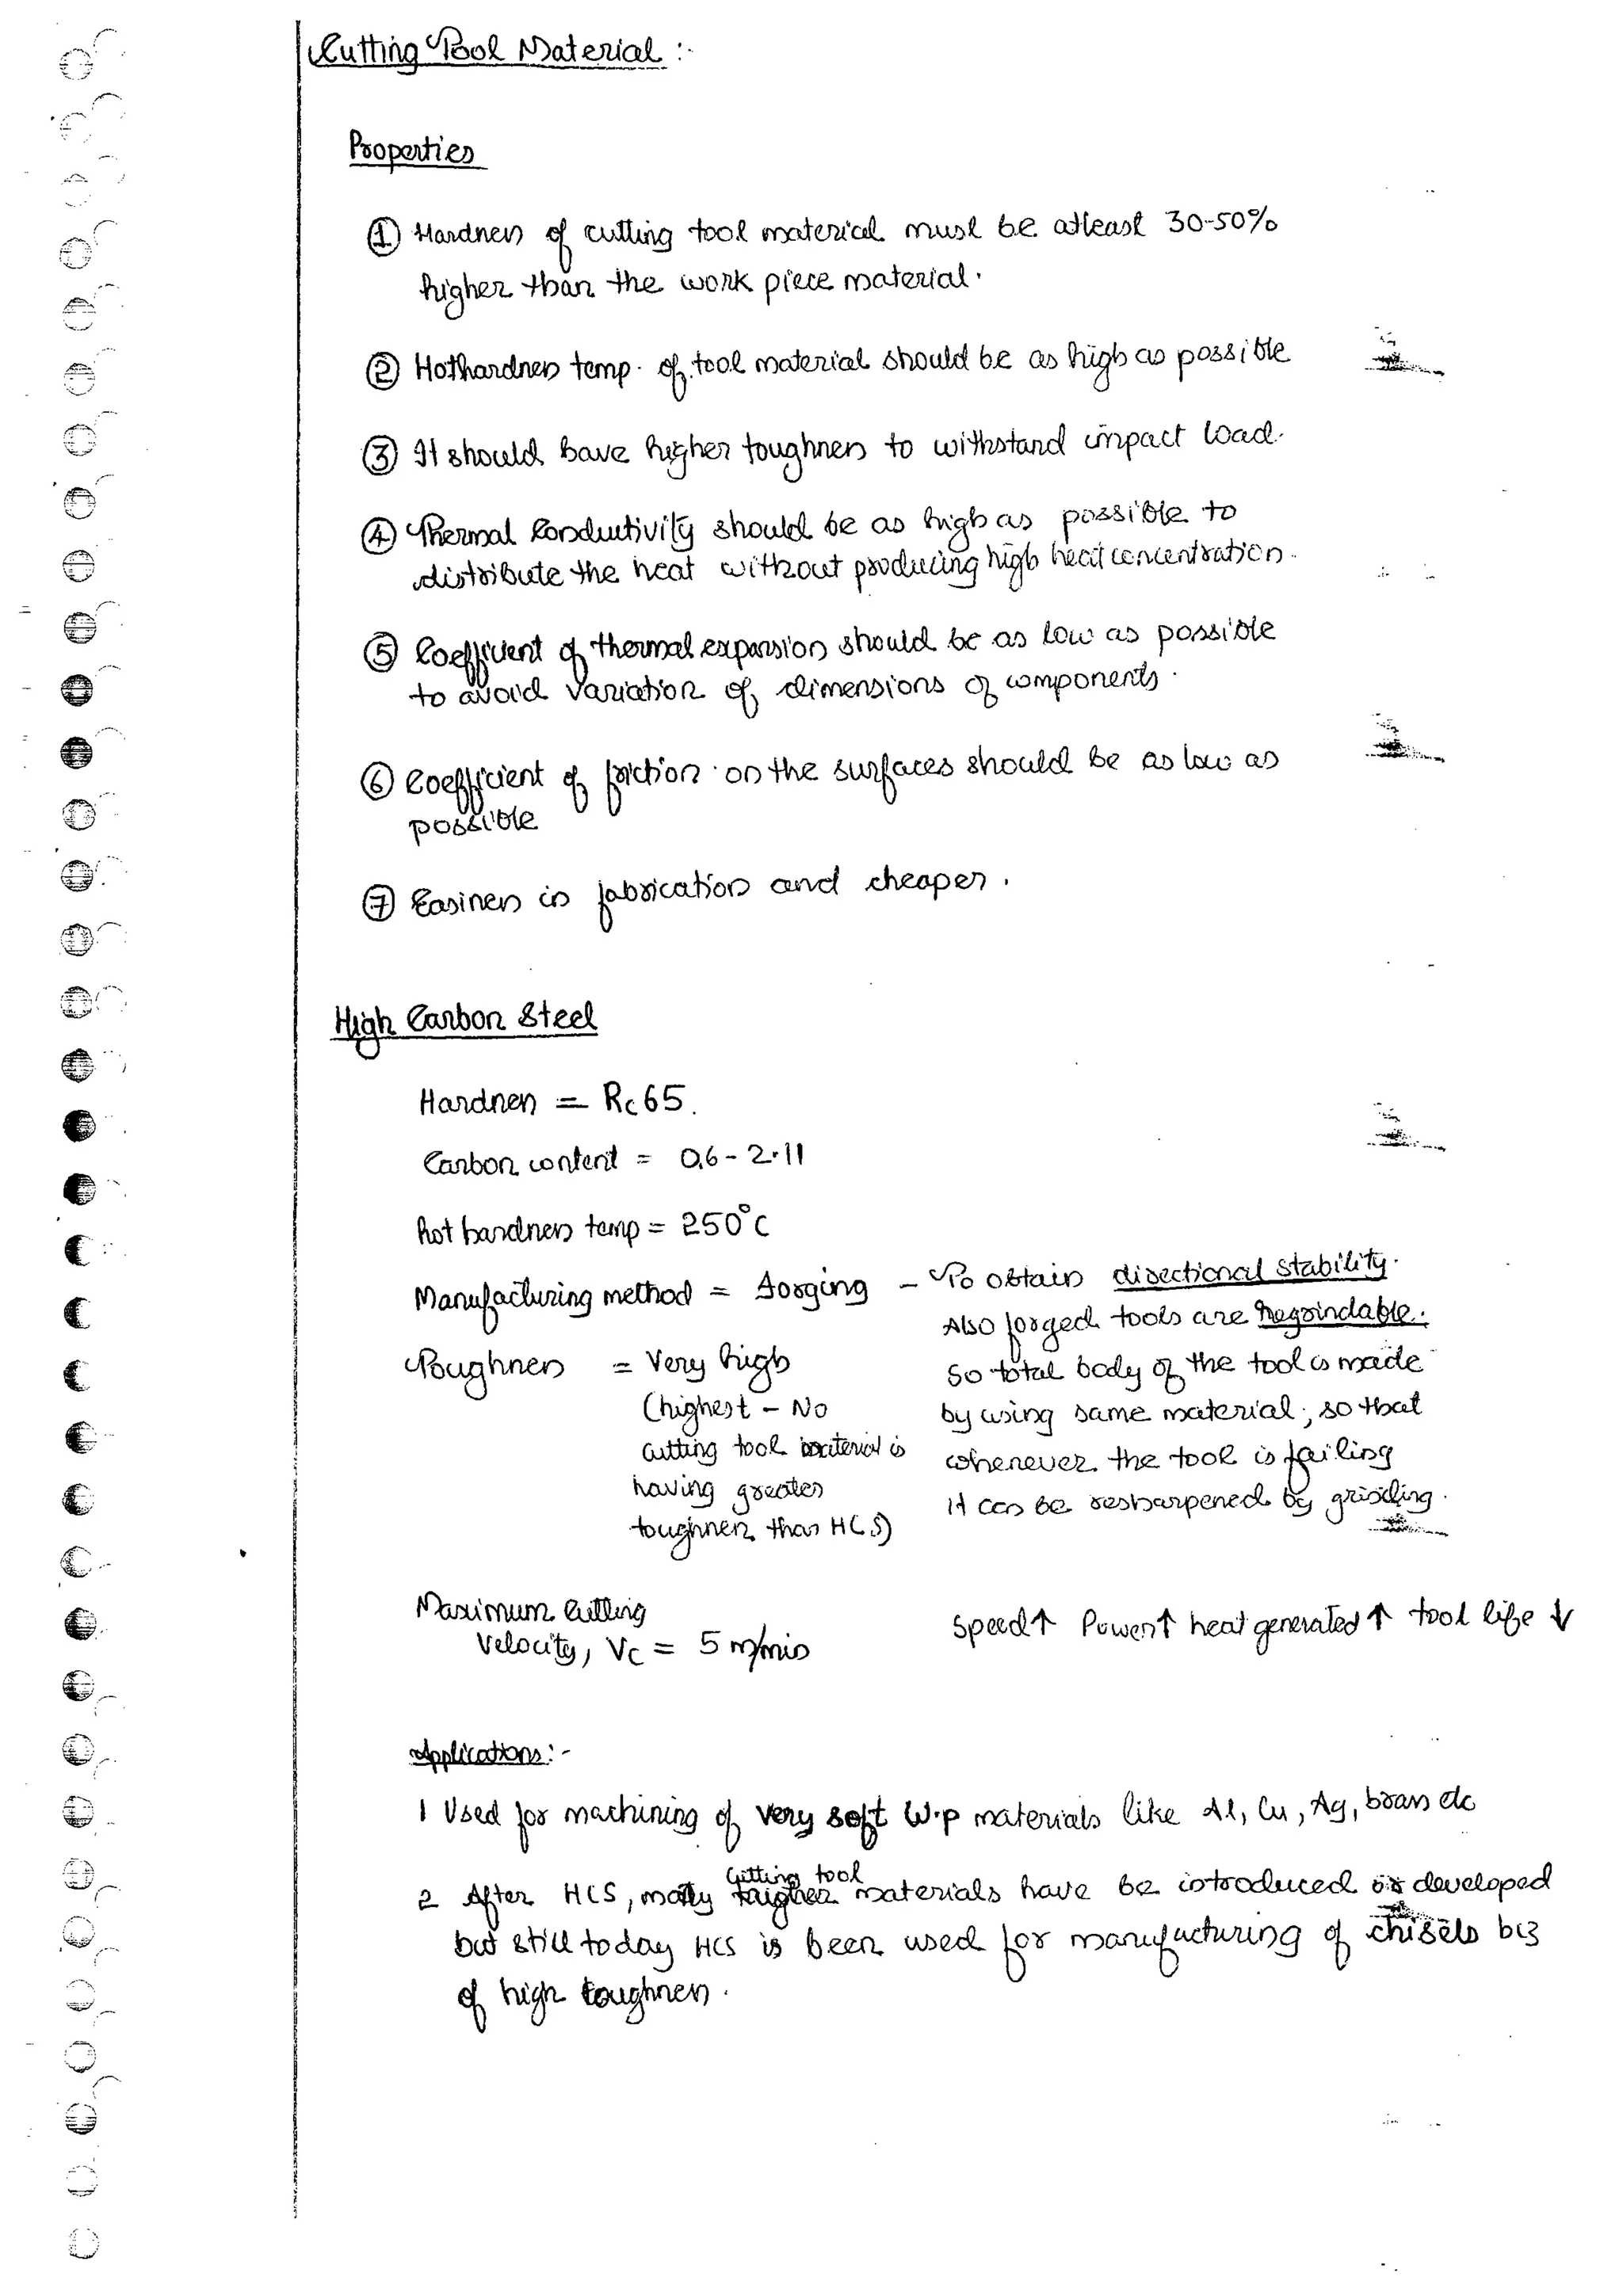 Cutting Tool Material :-
Properties
① Hardness of cutting tool material must be atleast 30-50%
higher than the work piece material.
② Hothardness temp. of tool material should be as high as possible
③ It should have higher toughness to withstand impact load.
④ Thermal Conductivity should be as high as possible to
distribute the heat without producing high heat concentration.
⑤ Coefficient of thermal expansion should be as low as possible
to avoid variation of dimensions of components.
⑥ Coefficient of friction on the surfaces should be as low as
possible
⑦ Easiness in fabrication and cheaper.
High Carbon Steel
Hardness = Rc 65.
Carbon content = 0.6 - 2.11
hot hardness temp = 250°C
Manufacturing method = forging - To obtain directional stability.
Also forged tools are Regrindable.
So total body of the tool is made
by using same material, so that
whenever the tool is failing
it can be resharpened by grinding.
Toughness = Very high
(highest - No
cutting tool material is
having greater
toughness than HCS)
Maximum Cutting
Velocity, Vc = 5 m/min
Speed↑ Power↑ heat generated ↑ tool life ↓
Applications:-
1 Used for machining of very soft W.p materials like Al, Cu, Ag, brass etc
2 After HCS, many cutting tool materials have be introduced or developed
but still today HCS is been used for manufacturing of chisels bcz
of high toughness.